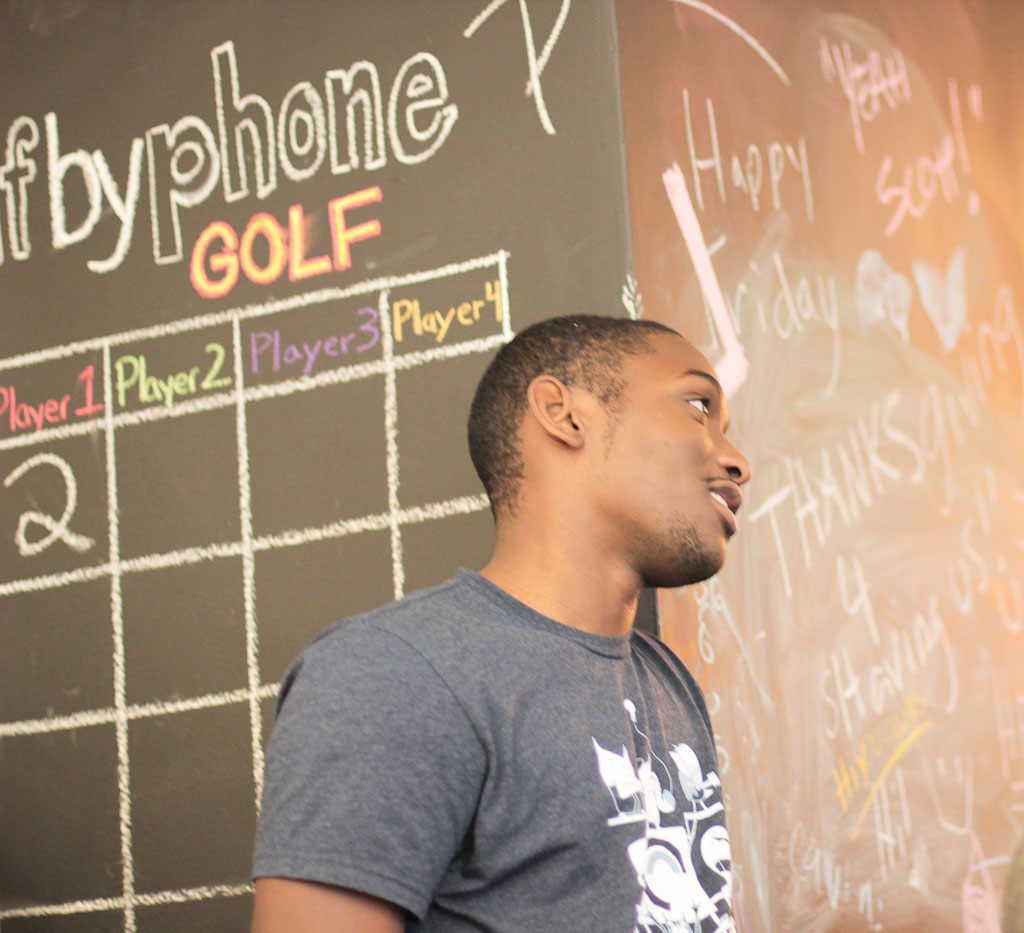 fbyphone
GOLF
Player 1
Player 2
Player 3
Player 4
2
P
"YEAH
SCOTT!"
Happy
Friday
THANKSGivving
4
SHaving
us!!
Hi!
Cavin.